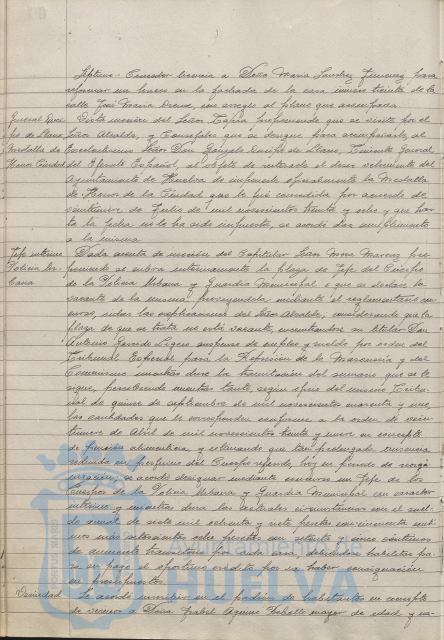 Septimo.- Conceder licencia a Doña Maria Sanchez Jimenez para
reformar un hueco en la fachada de la casa número treinta de la
calle José Maria con arreglo al plano que acompaña.
General Queipo de Llano Medalla de Honor Ciudad
Vista moción del Señor Tapia proponiendo que se visite por el
Señor Alcalde, y Concejales que se designe para acompañarle, al
Excelentisimo Señor Don Gonzalo Queipo de Llano, Teniente General
del Ejercito Español, al objeto de reiterarle el deseo vehemente del
Ayuntamiento de Huelva de imponerle oficialmente la Medalla
de Honor de la Ciudad que le fué concedida por acuerdo de
de Julio de mil novecientos treinta y ocho y que has-
ta la fecha no le ha sido impuesta, se acordó dar cumplimiento
a la misma.
Jefe interino Policia Urbana
Dada cuenta de moción del Capitular Señor Mora Marcos pro-
poniendo se cubra interinamente la plaza de Jefe del Cuerpo
de la Policia Urbana y Guardia Municipal o que se declare la
vacante de la misma, proveyendola mediante el reglamentario con-
curso, oidas las explicaciones del Señor Alcalde, considerando que la
plaza de que se trata no está vacante, encontrandose su titular Don
Antonio Garrido suspenso de empleo y sueldo por orden del
Tribunal Especial para la Represión de la Masoneria y del
Comunismo mientras dura la tramitación del sumario que se le
sigue, percibiendo mientras tanto, según oficio del mismo Tribu-
nal de quince de septiembre de mil novecientos cuarenta y uno,
las cantidades que le correspondan conforme a la orden de vein-
de Abril de mil novecientos treinta y nueve en concepto
de pensión alimenticia, y estimando que tan prolongada ausencia
redunda en perjuicio del Cuerpo referido, hoy en periodo de reorga-
nización, se acordó designar mediante concurso un Jefe de los
Cuerpos de la Policia Urbana y Guardia Municipal con caracter
interino y mientras dura las actuales circunstancias con el suel-
do anual de siete mil ochenta y siete pesetas cincuenta centi-
mos más setecientas ocho pesetas con setenta y cinco centimos
de aumento transitorio por cada año, debiendo habilitar pa-
ra su pago el oportuno crédito por no haber consignación
en presupuesto.
Vecindad
Se acordó inscribir en el padrón de habitantes en concepto
de vecino a Doña Isabel Aquino mayor de edad y ca-
HUELVA